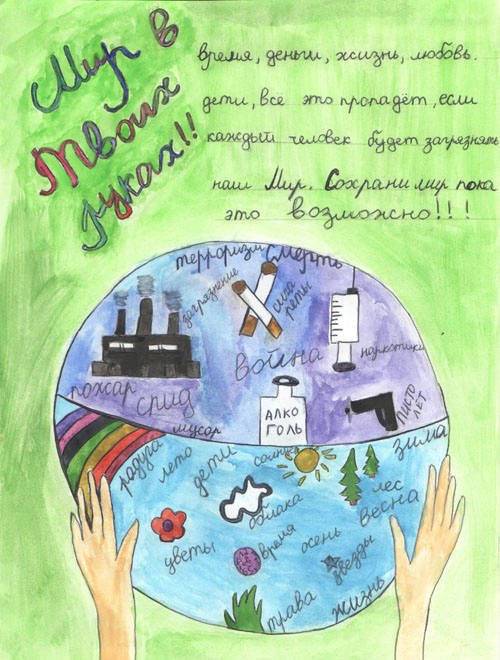 Мир в
Твоих
руках!!
время, деньги, жизнь, любовь.
дети, всё это пропадёт, если
каждый человек будет загрязнять
наш Мир. Сохрани мир пока
это возможно!!!
терроризм
смерть
загрязнение
сига
реты
война
наркотики
пожар
спид
мусор
АЛКО
ГОЛЬ
писто
лет
радуга
лето
дети
солнце
зима
лес
весна
облака
цветы
время
осень
звезды
трава
жизнь